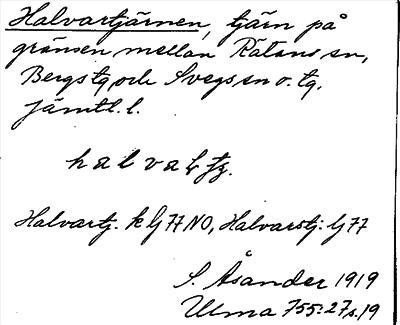 Halvartjärnen, tjärn på
gränsen mellan Rätans sn,
Bergs tg och Svegs sn o. tg.
Jämtl. l.
halva
Halvartj. k lj 77 NO, Halvarstj: lj 77
S. Åsander 1919
Ulma 755:27 s. 19